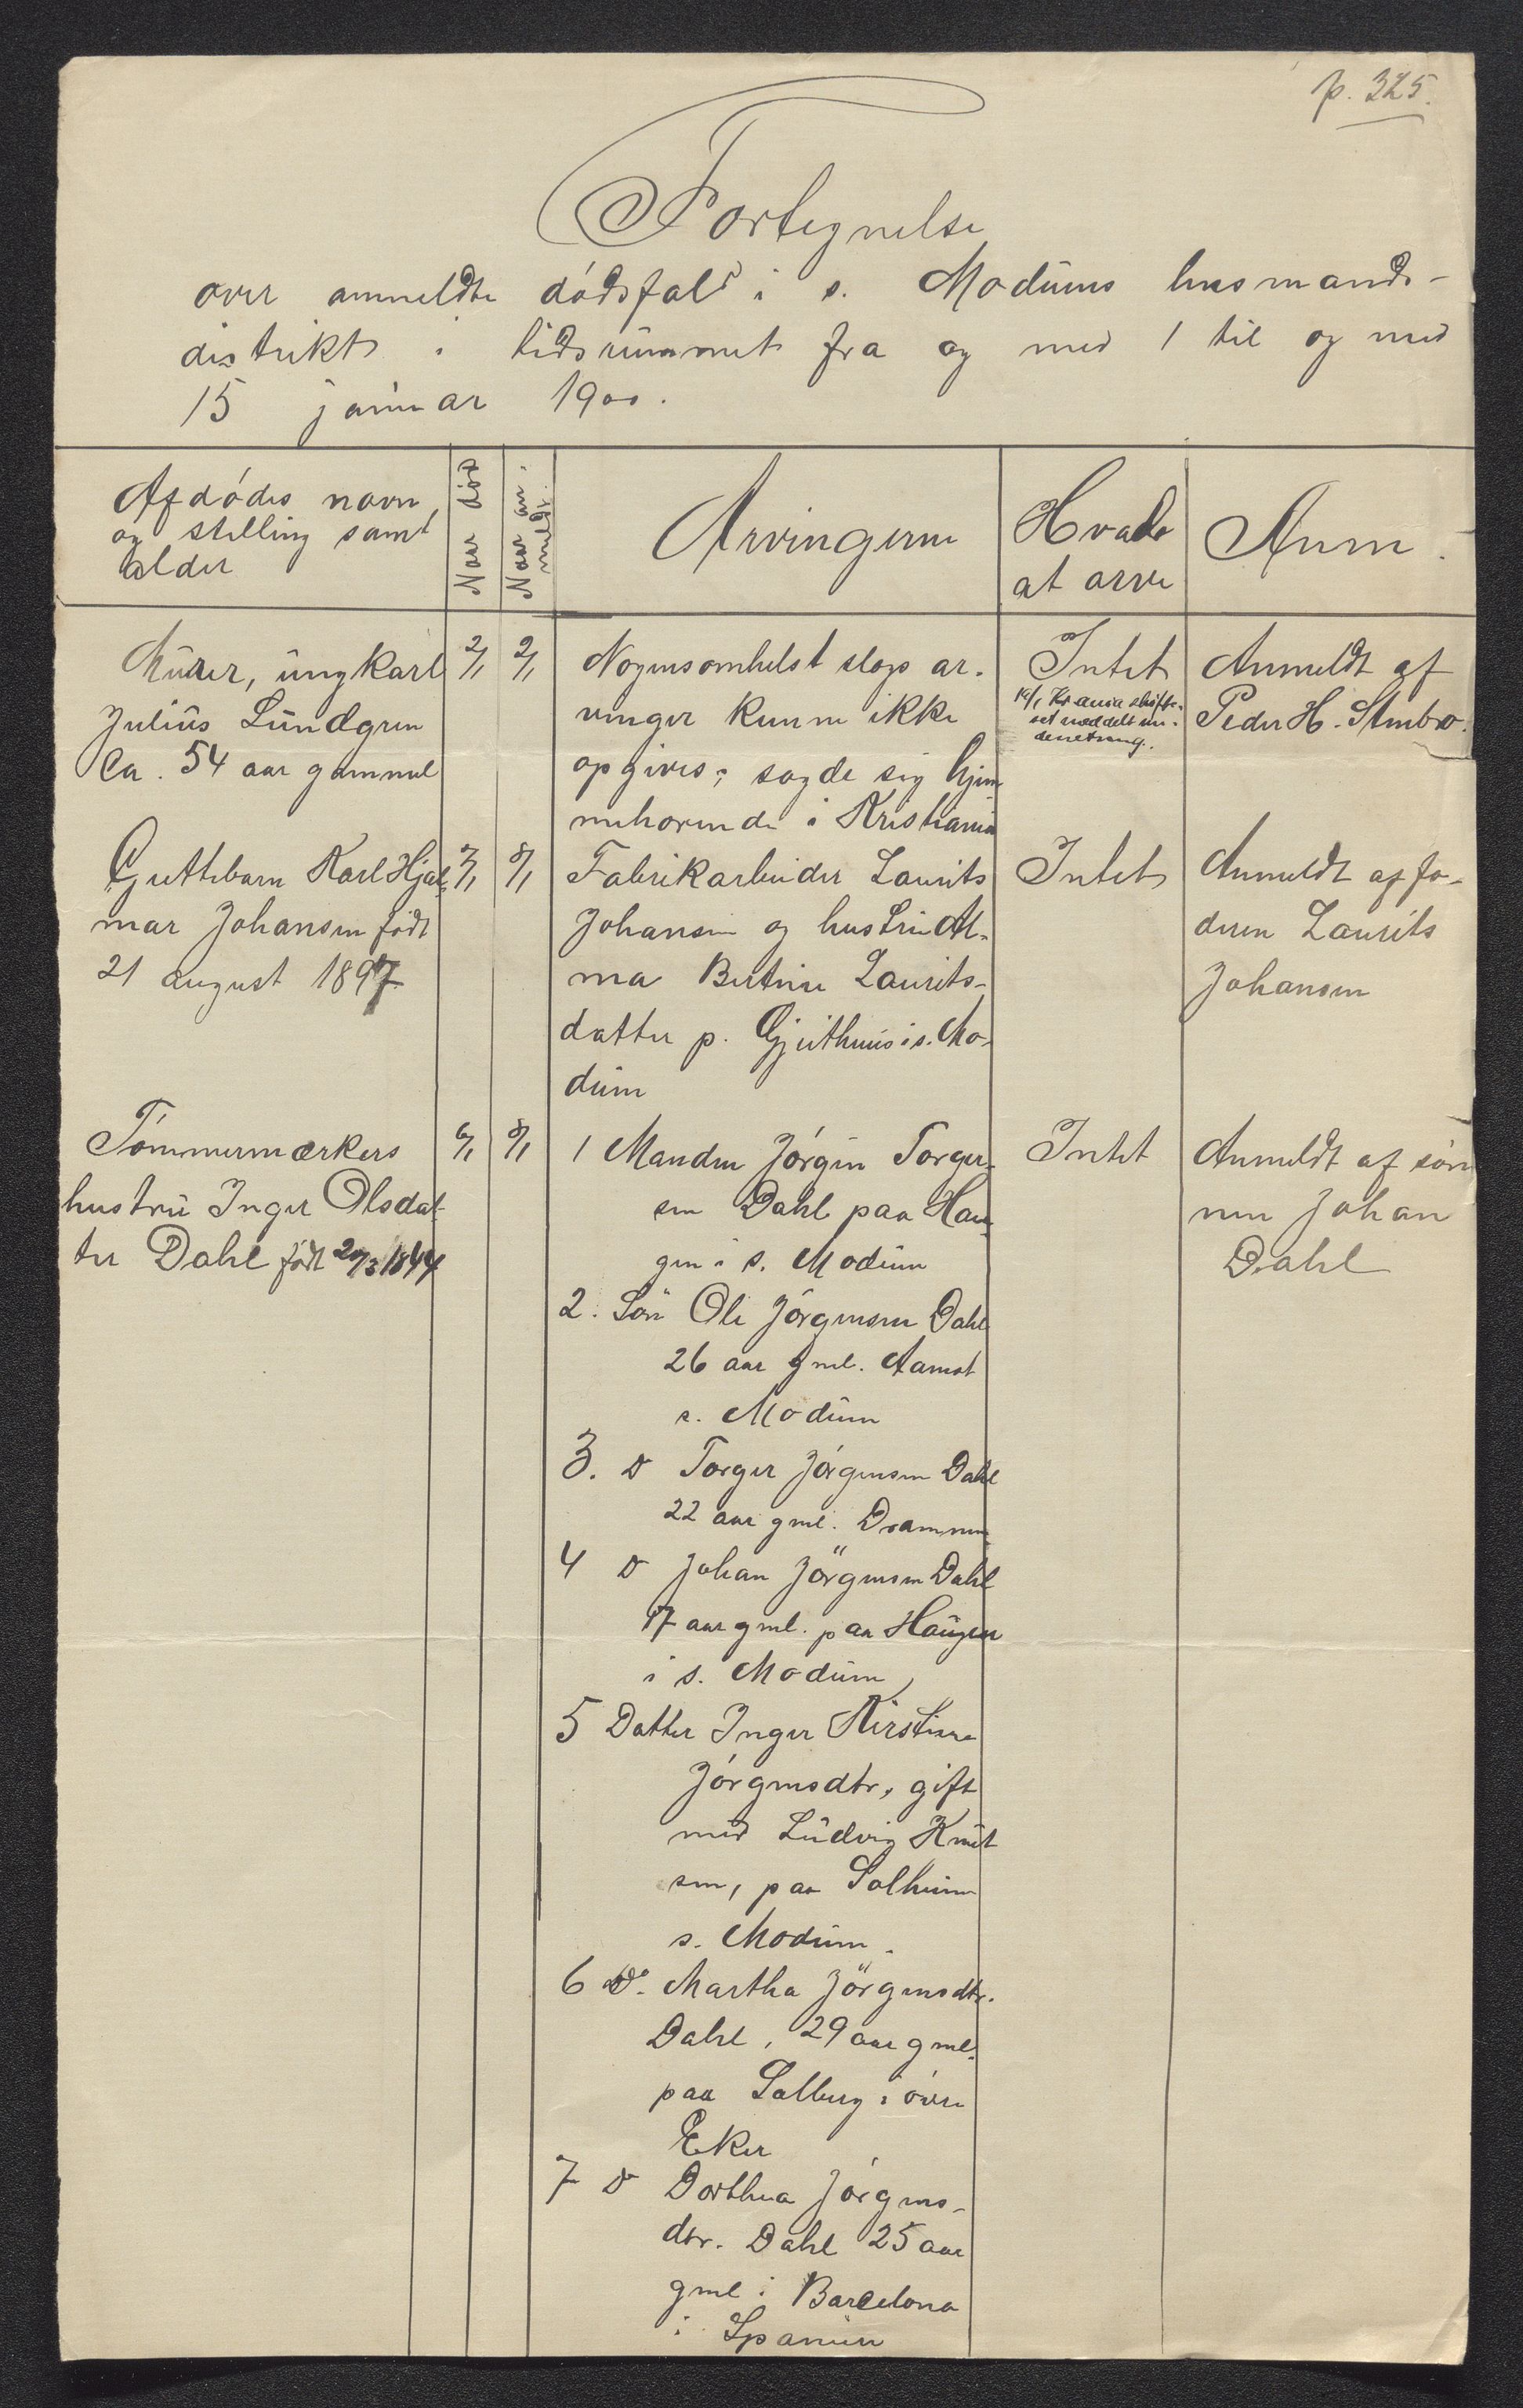 p. 325.
Fortegnelse
over anmeldte dödsfald i s. Modums lensmands-
distrikt i tidsrummet fra og med 1 til og med
15 januar 1900.
Afdödes navn,
og stilling samt
alder
Naar död
Naar an-
meldt.
Arvingerne
Hvad
at arve
Anm.
Murer, ungkarl
Julius Lundgren
Ca. 54 aar gammel
2/1
2/1
Nogensomhelst slags ar-
vinger kunne ikke
opgives; sagde sig hjem
mehörende i Kristiania
Intet
Anmeldt af
Peder H.
Guttebarn Karl Hjal-
mar Johansen född
21 august 1897
3/1
8/1
Fabrikarbeider Laurits
Johansen og hustru Al-
ma Bertine Laurits-
datter p. Gjeithus i s. Mo-
dum
Intet
Anmeldt af fa-
deren Laurits
Johansen
Tömmermærkers
hustru Inger Olsdat-
ter Dahl född 20/3 1844
6/1
8/1
1 Manden Jörgen Torger-
sen Dahl paa Hau-
gen i s. Modum
2. Sön Ole Jörgensen Dahl
26 aar gml. Aamot
s. Modum
3. D Torger Jörgensen Dahl
22 aar gml. Drammen
4 D Johan Jörgensen Dahl
17 aar gml. paa Haugen
i s. Modum
5 Datter Inger Kirstine
Jörgensdtr, gift
med Ludvig Knut
sen, paa Solheim
s. Modum.
6 Do. Martha Jörgensdtr.
Dahl, 29 aar gml.
paa Solberg i övre
Eker
7 D Dorthea Jörgens-
dtr. Dahl 25 aar
gml i Barcelona
i Spanien
Intet
Anmeldt af sön
nen Johan
Dahl